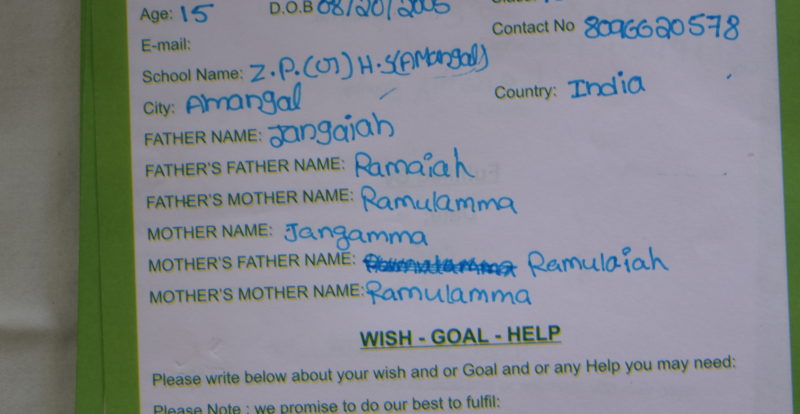 Age: 15 D.O.B 08/20/2005
Contact No 8096620578
E-mail:
School Name: Z.P.(U1) H.S(AMangal)
City: Amangal Country: India
FATHER NAME: Jangaiah
FATHER'S FATHER NAME: Ramaiah
FATHER'S MOTHER NAME: Ramulamma
MOTHER NAME: Jangamma
MOTHER'S FATHER NAME: Ramulaiah
MOTHER'S MOTHER NAME: Ramulamma
WISH - GOAL - HELP
Please write below about your wish and or Goal and or any Help you may need:
Please Note : we promise to do our best to fulfil: